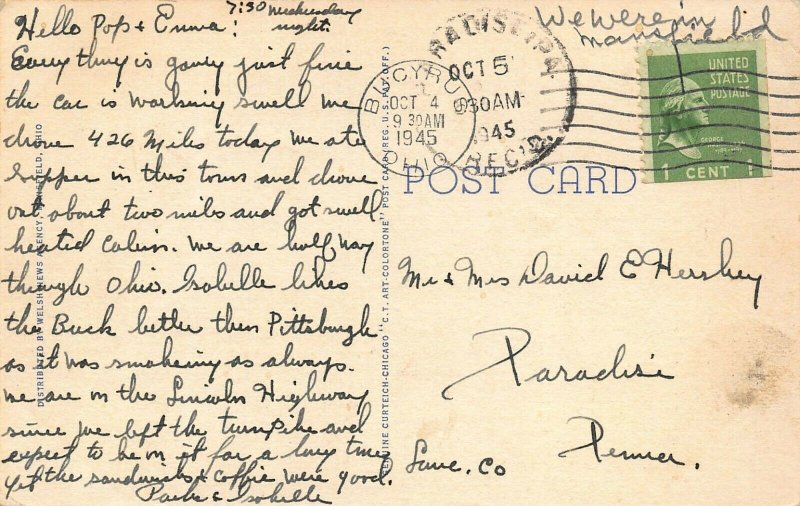 7:30 Wednesday
night.
Hello Pop & Emma!
Everything is going just fine
the car is working swell we
drove 426 miles today we ate
supper in this town and drove
out about two miles and got swell
heated cabin. We are half way
through Ohio. Isabelle likes
the Buck better then Pittsburgh
as it was smokeing as always.
we are on the Lincoln Highway
since we left the turnpike and
expect to be on it for a long time
yet the sandwiches & coffie were good.
& Isabelle
DISTRIBUTED BY WELSH NEWS AGENCY, MANSFIELD, OHIO
GENUINE CURTEICH-CHICAGO "C.T. ART-COLORTONE" POST CARD (REG. U.S. PAT. OFF.)
We were in
Mansfield
BUCYRUS
OCT 4
9 30 AM
1945
OHIO
PARADISE, PA.
OCT 5
30 AM
1945
REC'D.
UNITED
STATES
POSTAGE
GEORGE
1 CENT 1
POST CARD
Mr & Mrs David E Hershey
Paradise
Lanc. Co
Penna.